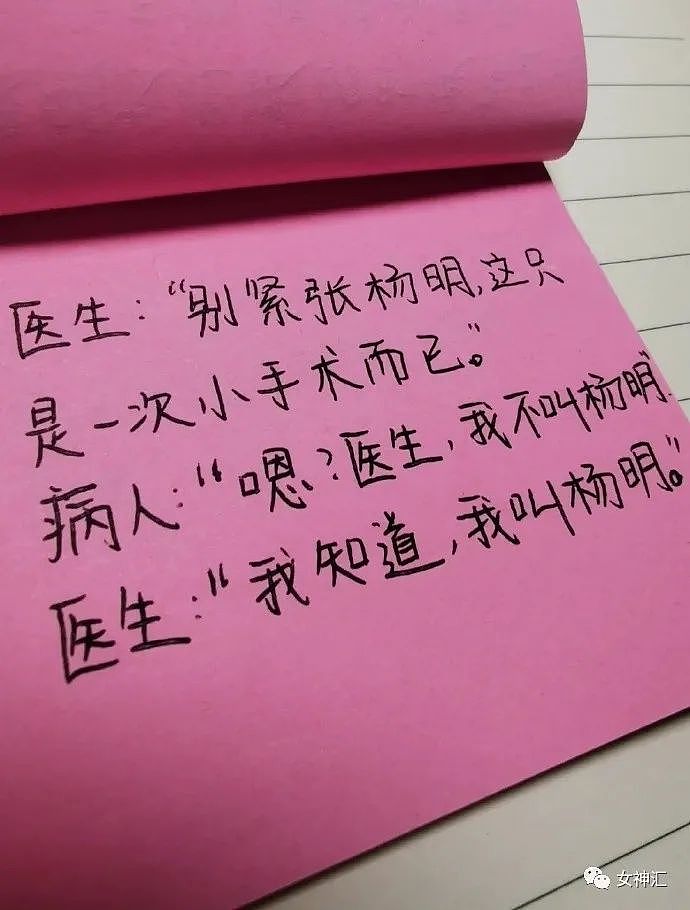 医生："别紧张杨明,这只
是一次小手术而已。"
病人："嗯?医生,我不叫杨明."
医生："我知道,我叫杨明。"
女神汇